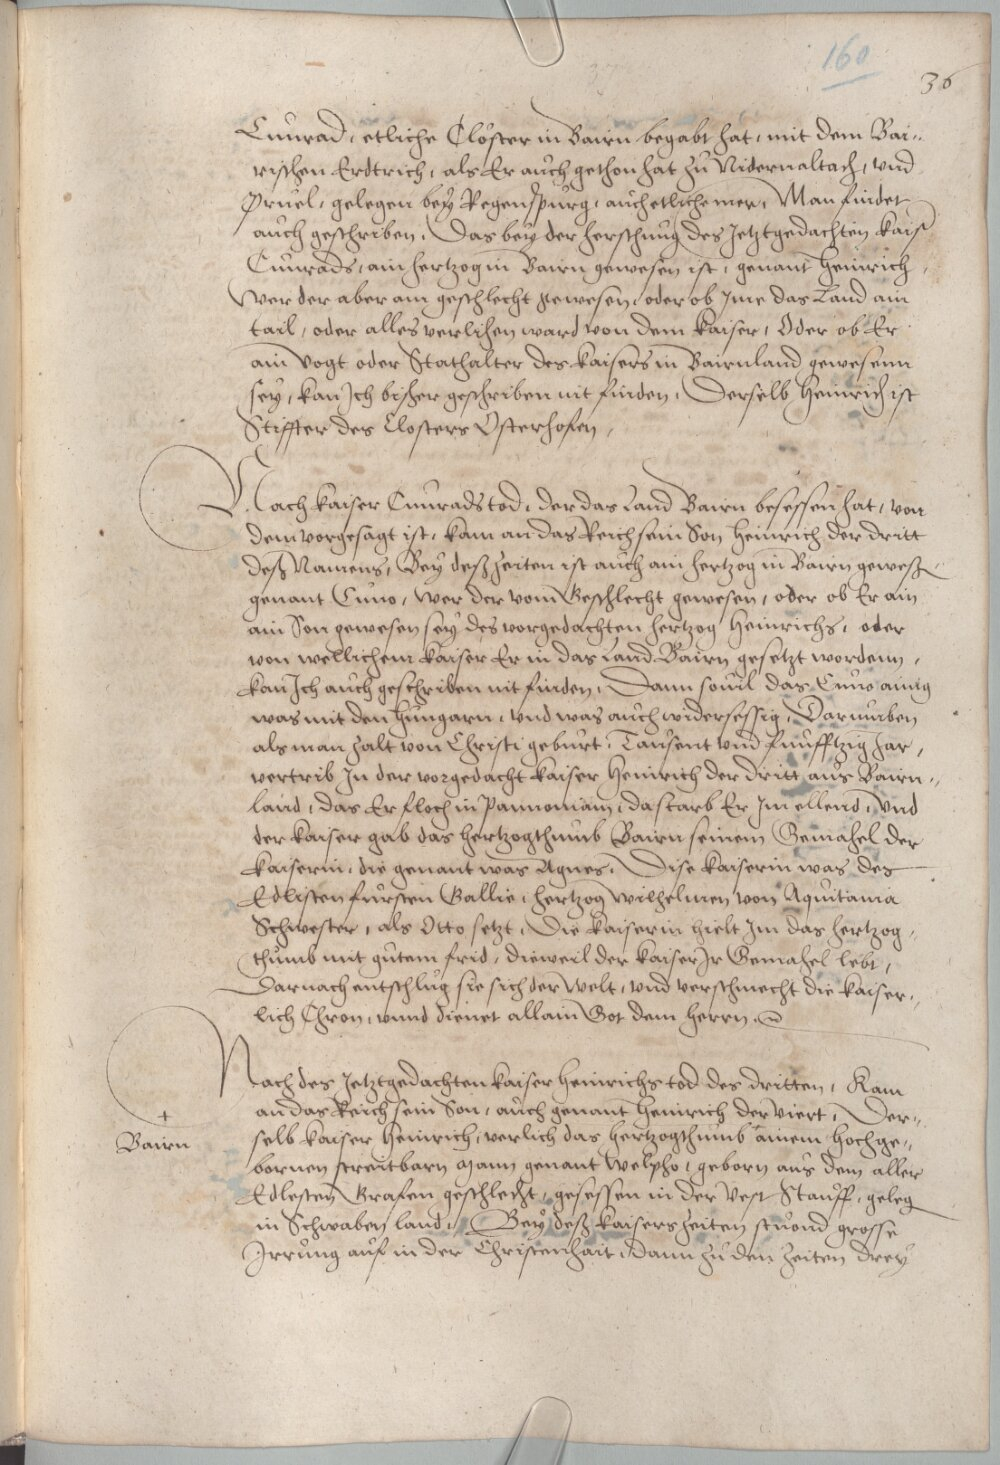 160
36
Cunrad, etliche Clöster in Bairn begabt hat, mit dem Bai-
rischen Erdtrich, als Er auch gethon hat zu Nidernaltach, vnd
Pruel, gelegen bey Regenspurg, auch etliche mer, Man findet
auch geschriben, Das bey der herschung des Jetztgedachten kais
Cunrads, ain hertzog in Bairn gewesen ist, genant Heinrich,
Wer der aber am geschlecht gewesen, oder ob Jme das Land ain
tail, oder alles verlihen ward von dem kaiser, Oder ob Er
ain Vogt oder Stathalter des kaisers in Bairnland gewesenn
sey, kan Ich bisher geschriben nit finden, Derselb Heinrich ist
Stiffter des Closters Osterhofen,
Nach kaiser Cunrads tod, der das Land Bairn besessen hat, von
dem vorgesagt ist, kam an das Reich sein Son Heinrich der dritt
desz Namens, Bey desz zeiten ist auch ain hertzog in Bairn gewesz
genant Cuno, Wer der vom Geschlecht gewesen, oder ob Er ain
ain Son gewesen sey des vorgedachten hertzog Heinrichs, oder
von wellichem kaiser Er in das Land Bairn gesetzt wordenn,
kan Ich auch geschriben nit finden, Dann souil das Cuno ainig
was mit den Hungarn, vnd was auch widersessig, Darumben
als man zalt von Christi geburt, Tausent vnd funfftzig Jar,
vertrib In der vorgedacht kaiser Heinrich der dritt aus Bairn-
land, das Er floch in Pannoniam, da starb Er Im ellend, vnd
der kaiser gab das hertzogthumb Bairn seinem Gemahel der
kaiserin, die genant was Agnes, Dise kaiserin was des
Edlisten fursten Gallie, hertzog Wilhelmen von Aquitania
Schwester, als Otto setzt, Die kaiserin hielt Im das hertzog-
thumb mit gutem frid, dieweil der kaiser Ir Gemahel lebt,
Darnach entschlug sie sich der Welt, vnd verschmecht die kaiser-
lich Chron, vnnd dienet allain Got dem herrn.
Nach des Jetztgedachten kaiser Heinrichs tod des dritten, Kam
an das Reich sein Son, auch genant Heinrich der viert, Der-
selb kaiser Heinrich, verlich das hertzogthumb ainem hochge-
bornen streitbarn Mann genant Welpho, geborn aus dem aller
Edlesten Grafen geschlecht, gesessen in der Vest Stauff, geleg
in Schwaben land, Bey desz kaisers zeiten stuond grosse
Irrung auf in der Christenhait, dann zu den zeiten drey
+
Bairn